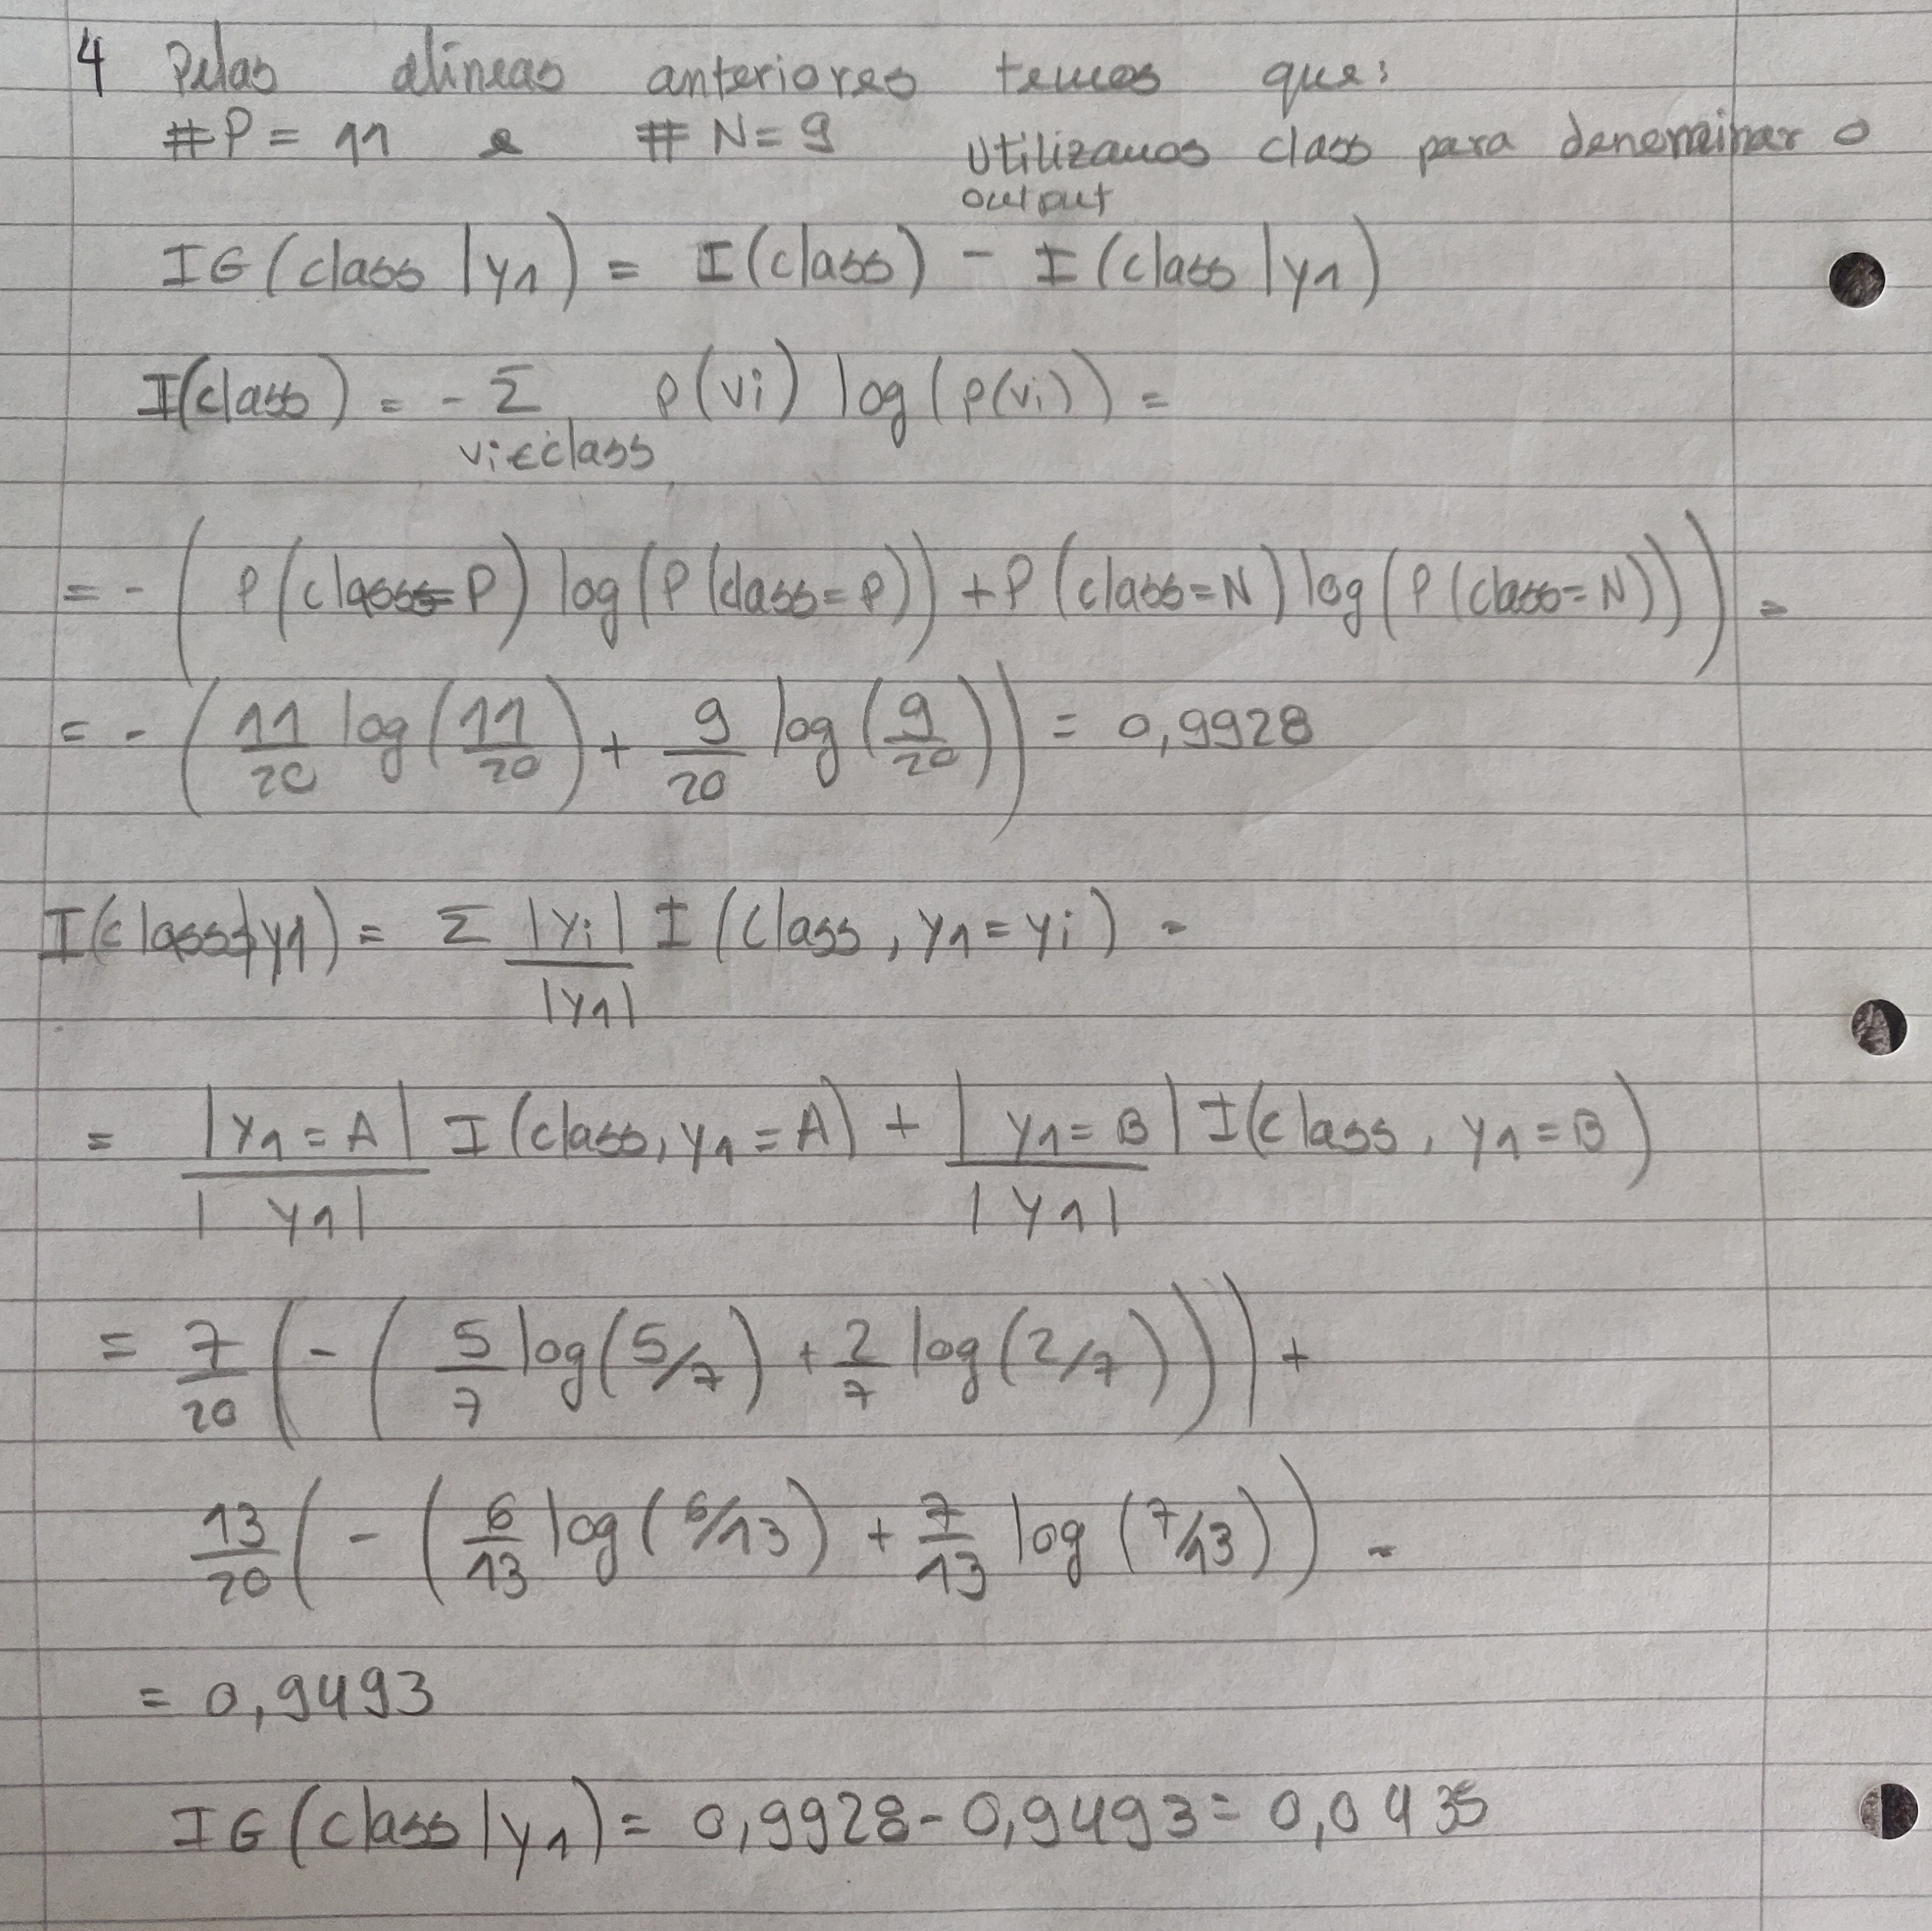 4 Pelas alíneas anteriores temos que:
#P = 11 e #N = 9 Utilizamos class para denominar o
output
IG(class|y1) = I(class) - I(class|y1)
I(class) = - Σ p(vi) log(p(vi)) =
vi∈class
= - (P(class=P) log(P(class=P)) + P(class=N) log(P(class=N))) =
= - (11/20 log(11/20) + 9/20 log(9/20)) = 0,9928
I(class|y1) = Σ |yi|/|y1| I(class, y1=yi) =
= |y1=A|/|y1| I(class, y1=A) + |y1=B|/|y1| I(class, y1=B)
= 7/20 (-(5/7 log(5/7) + 2/7 log(2/7))) +
13/20 (-(6/13 log(6/13) + 7/13 log(7/13)) =
= 0,9493
IG(class|y1) = 0,9928 - 0,9493 = 0,0435